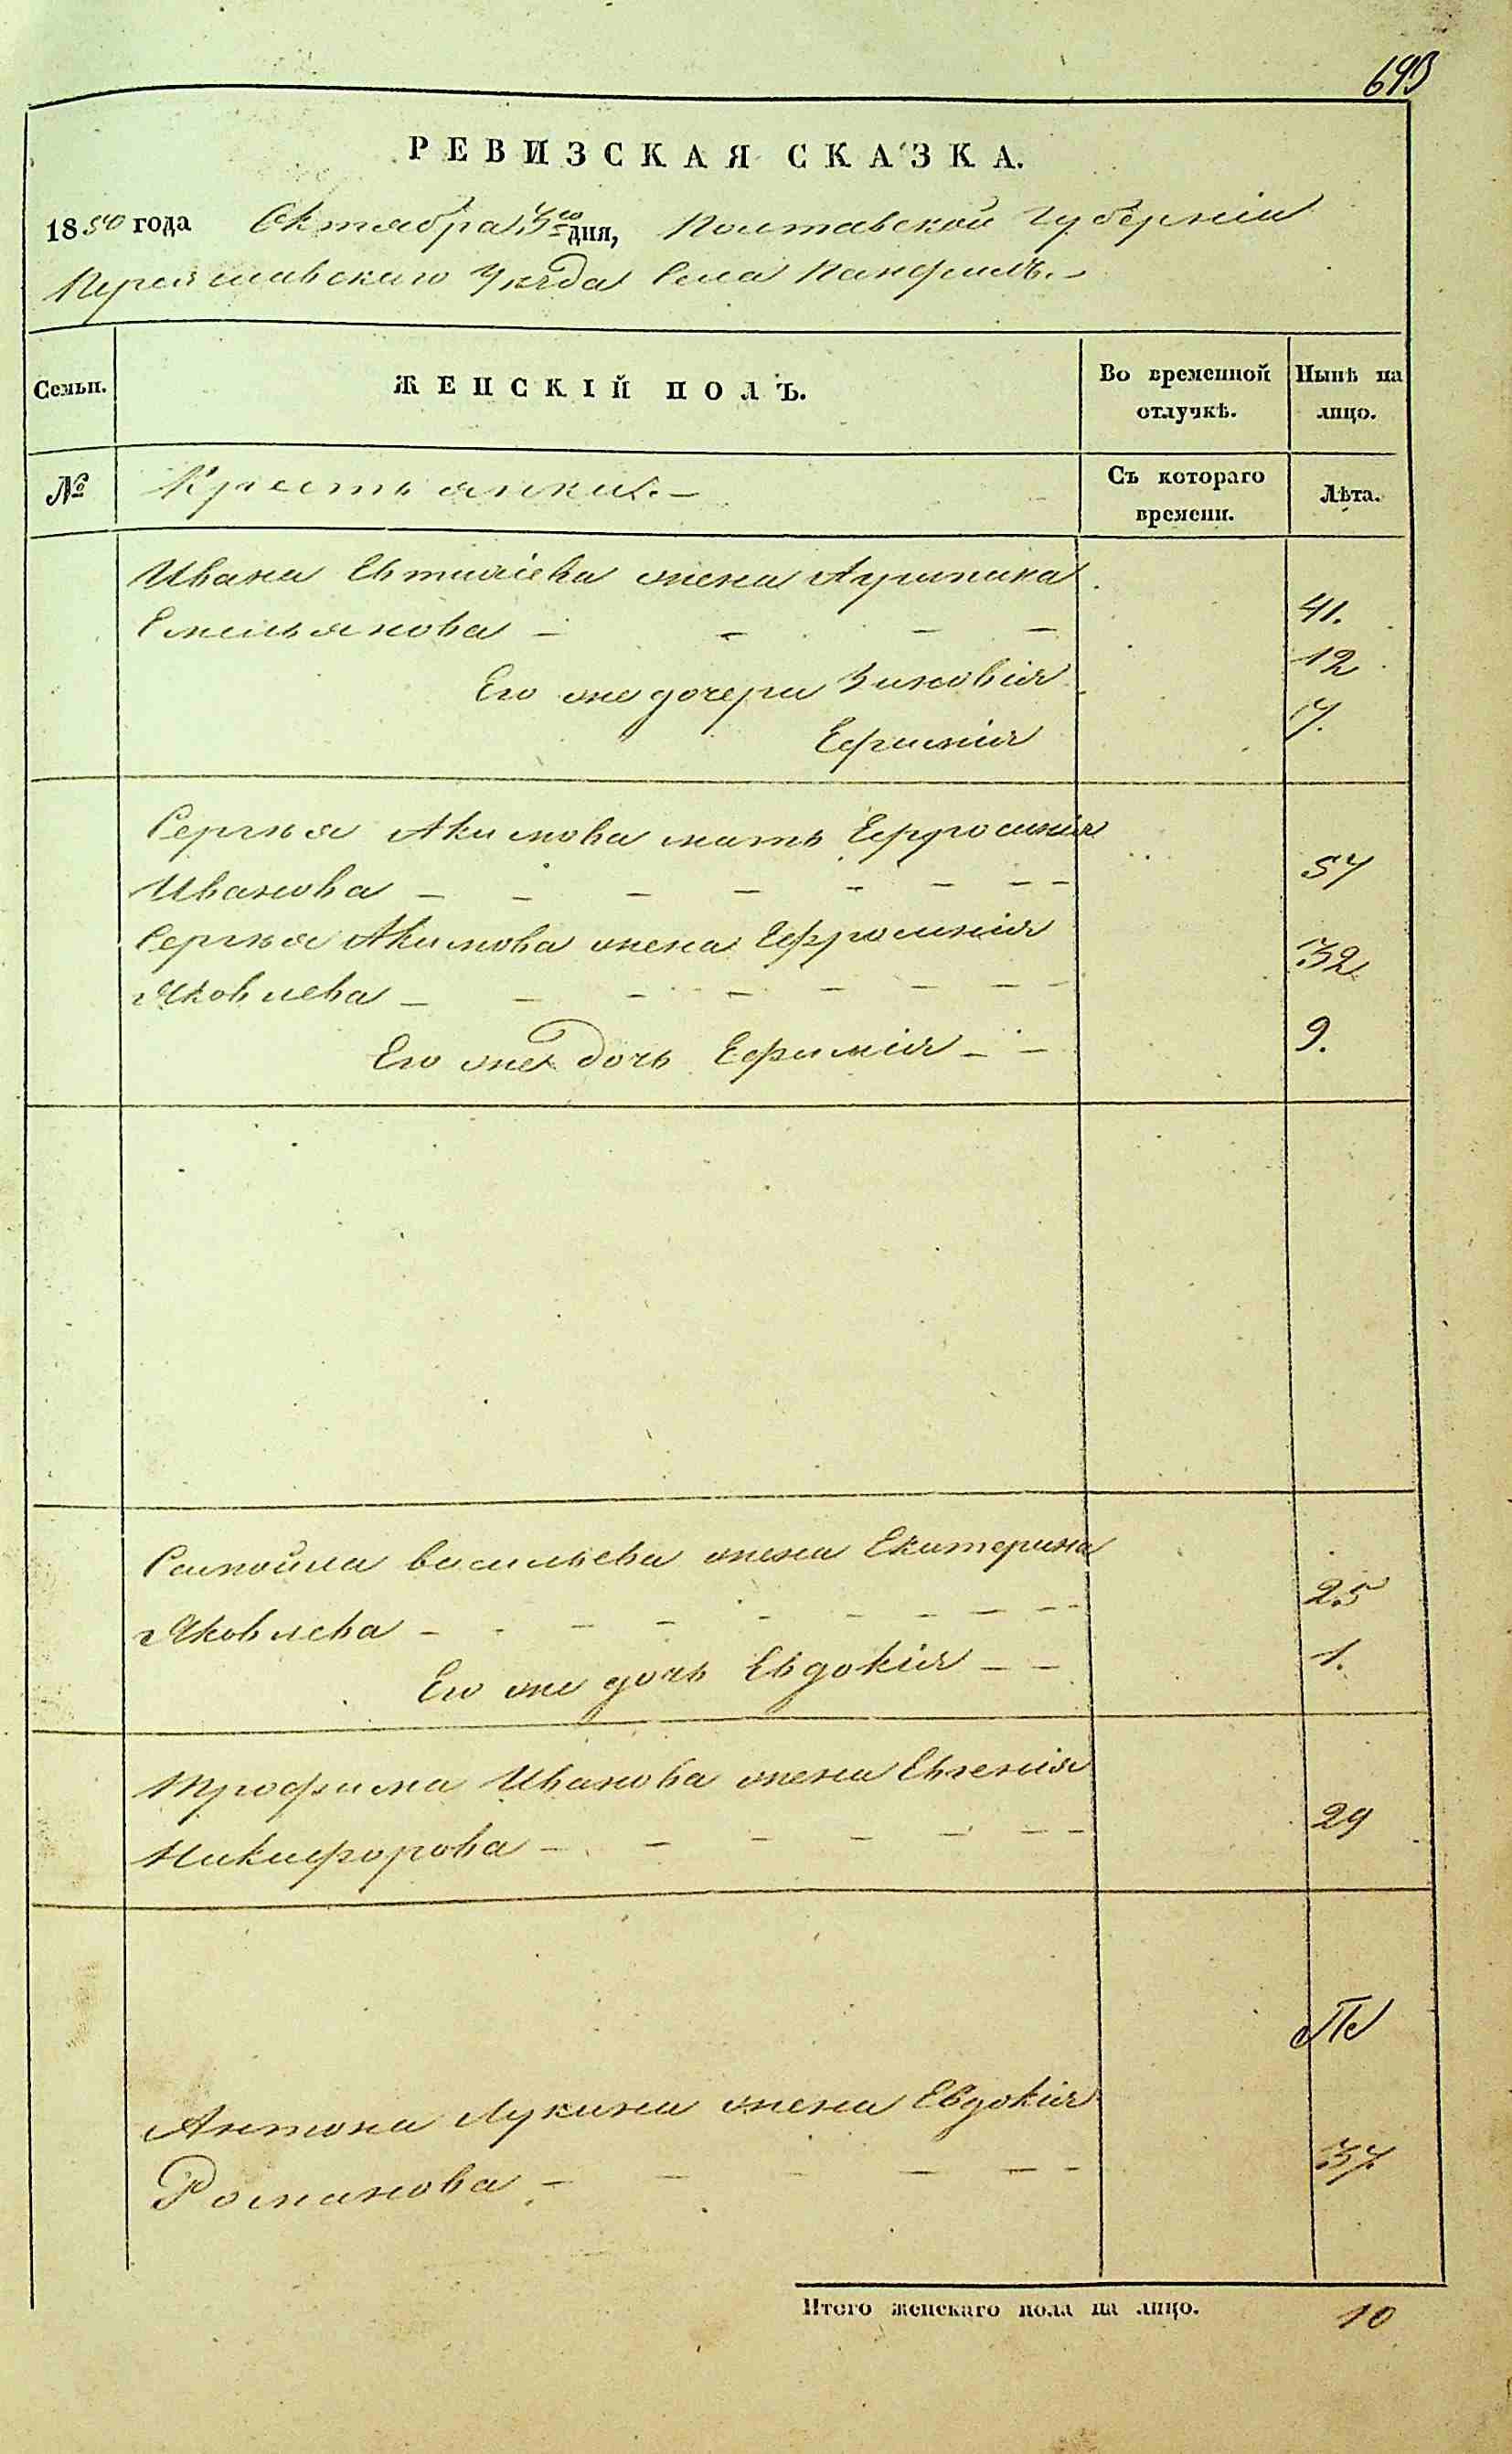 693
РЕВИЗСКАЯ СКАЗКА.
1850 года Октября 3го дня, Полтавской Губерніи
Переяславскаго Уѣзда Села Панфилъ.
Семьи.
ЖЕНСКІЙ ПОЛЪ.
Во временной отлучкѣ.
Нынѣ на лицо.
№
Крестьянки.
Съ котораго времени.
Лѣта.
Ивана Евтиѣева жена Агрипина
Емельянова 41.
Его же дочери Зиновія 12
Ефимія 7.
Сергѣя Акимова мать Ефросинія
Иванова 57
Сергѣя Акимова жена Ефросинія
Яковлева 32
Его же дочь Ефимія 9.
Самойла Васильева жена Екатерина
Яковлева 25
Его же дочь Евдокія 1.
Трофима Иванова жена Евгенія
Никифорова 29
Антона Лукина жена Евдокія
Романова 37
Итого женскаго пола на лицо. 10